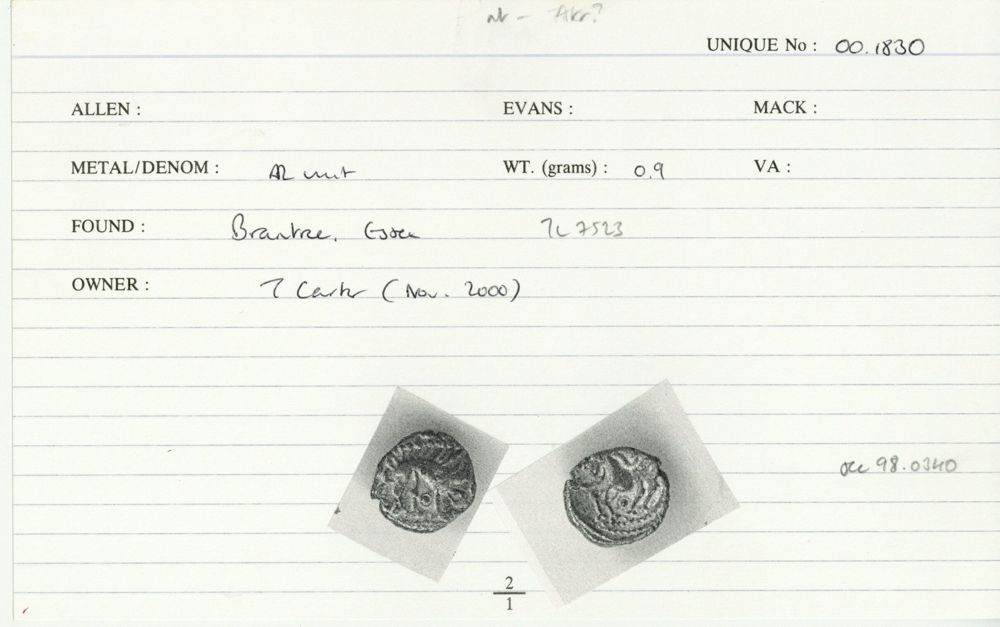 UNIQUE No : 00.1830
ALLEN : EVANS : MACK :
METAL/DENOM : AR unit WT. (grams) : 0.9 VA :
FOUND : Braintree, Essex 7523
OWNER : T Carter (Nov. 2000)
98.0340
2
1